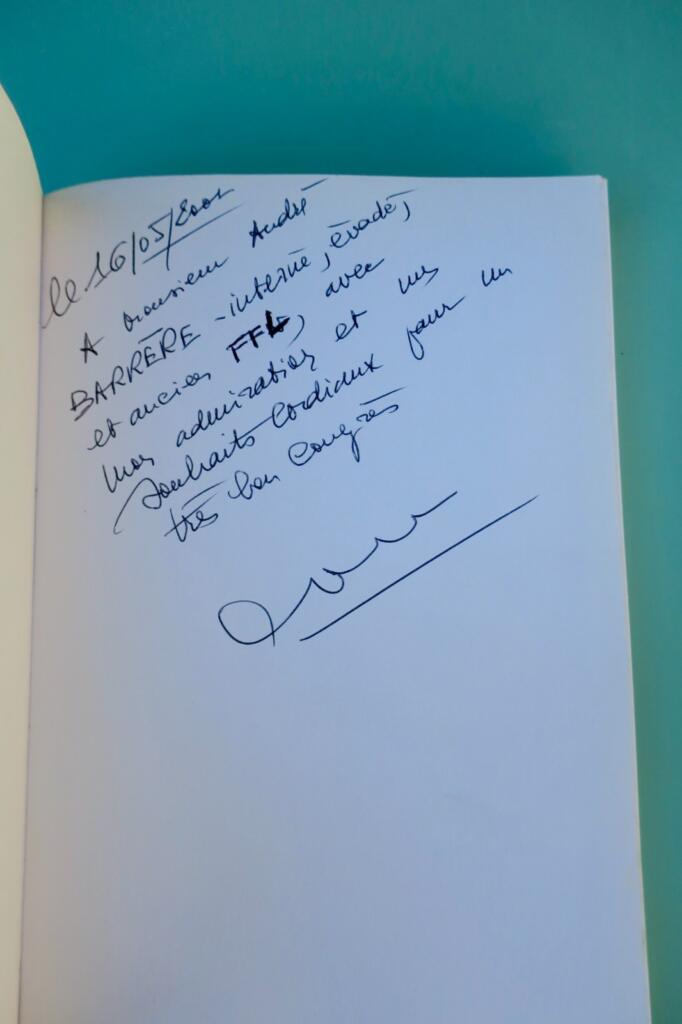 le 16/05/2001
A monsieur André
BARRÈRE - interné, évadé,
et ancien FFL, avec
mon admiration et mes
souhaits cordiaux pour un
très bon Congrès